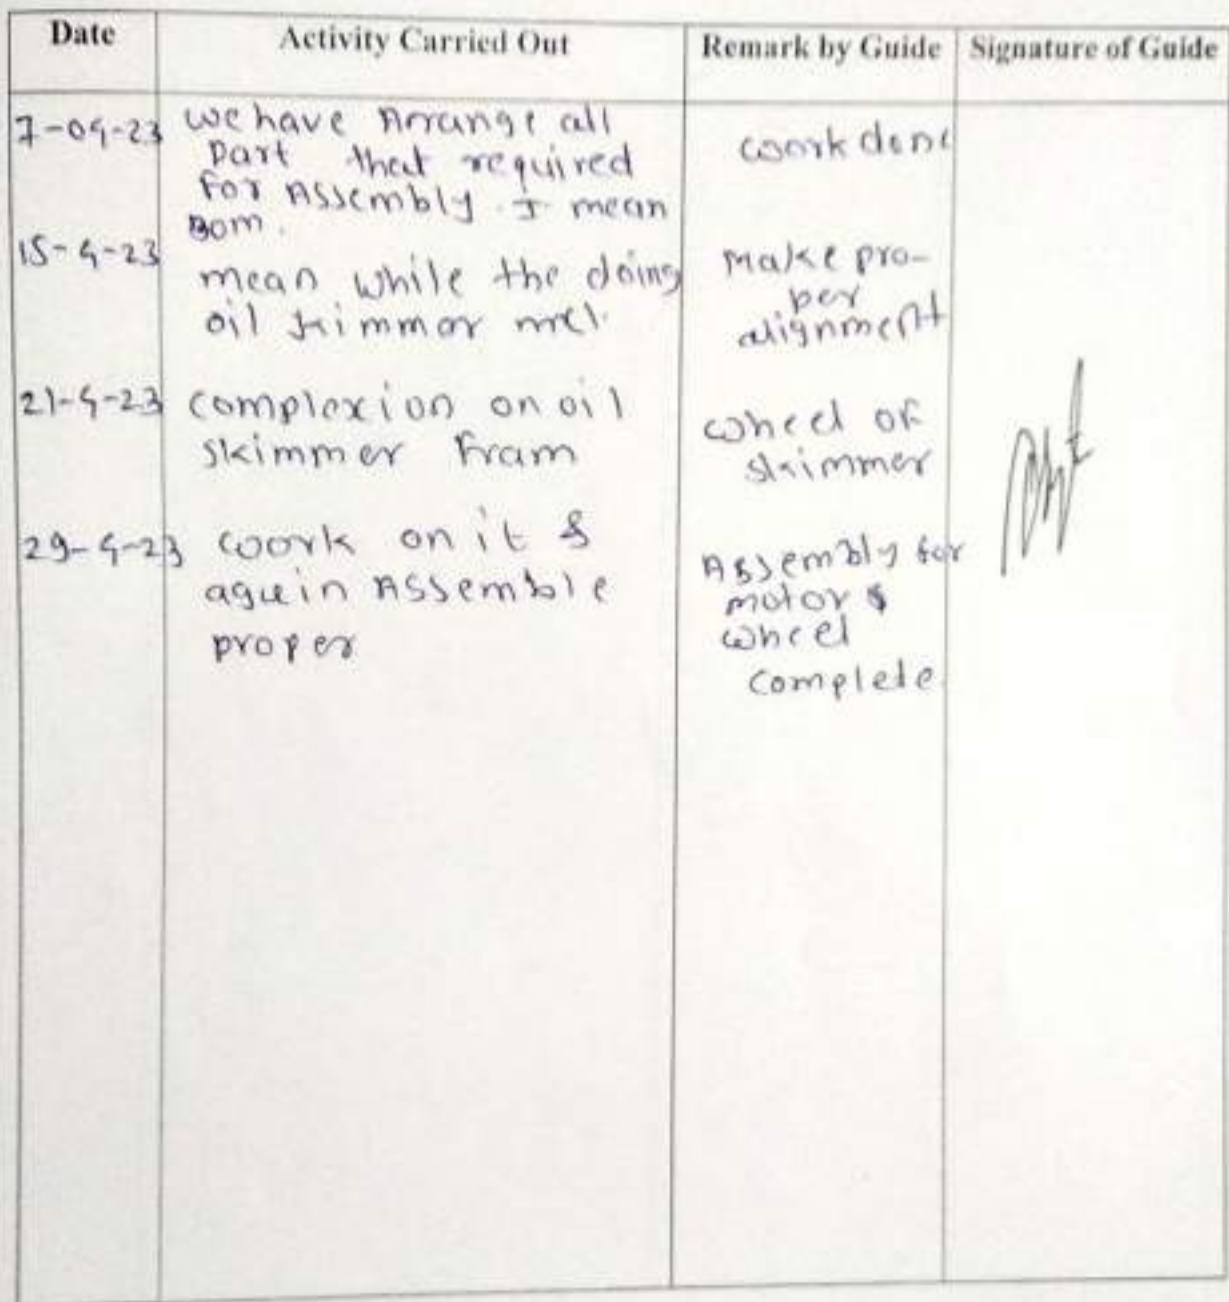 Date Activity Carried Out Remark by Guide Signature of Guide
7-04-23 we have Arrange all
Part that required
For Assembly. I mean
BOM.
work done
15-4-23
mean while the doing
oil
Make pro-
per
alignment
21-4-23 complexion on oil
skimmer Fram
wheel of
skimmer
29-4-23 work on it &
aguein Assemble
proper
Assembly for
motor &
wheel
complete